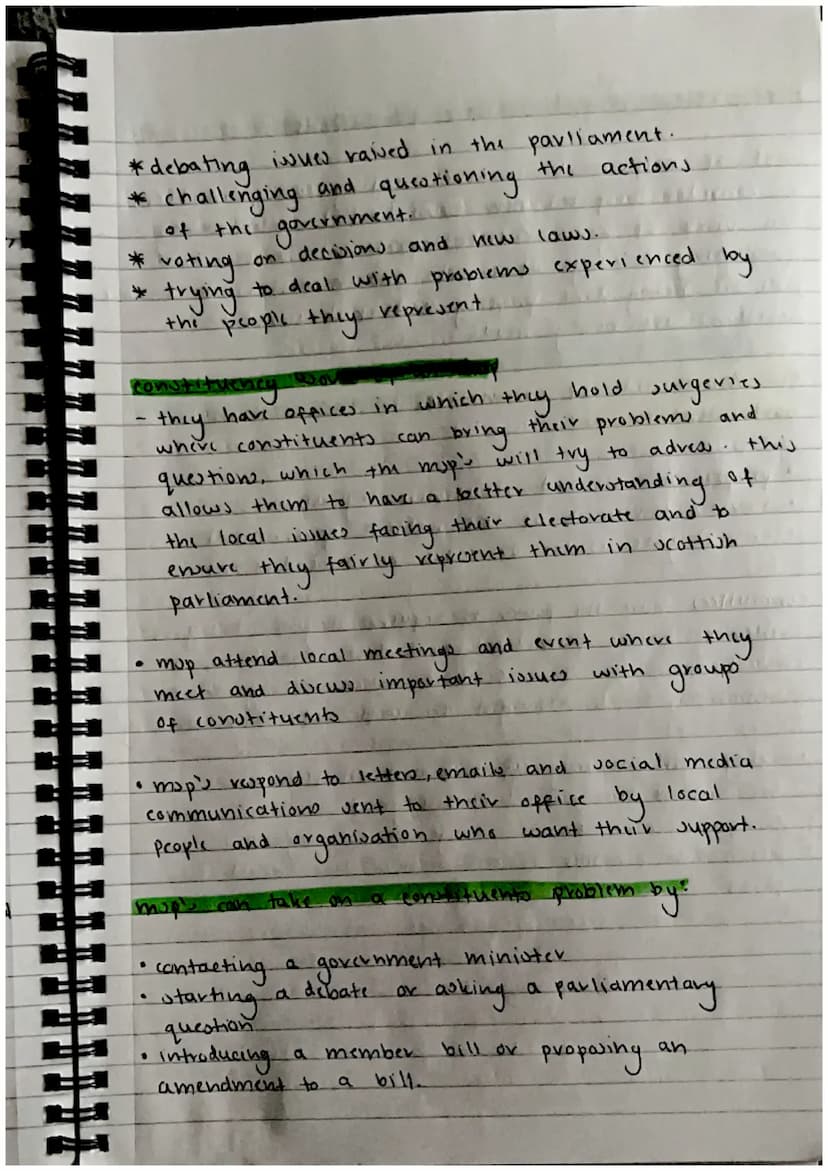 * debating issues raised in the parliament.
* challenging and questioning the actions
of the government.
* voting on decisions and new laws.
* trying to deal with problems experienced by
the people they represent
constituency
- they have offices in which they hold surgeries
where constituents can bring their problems and
questions, which the msp's will try to . this
allows them to have a better understanding of
the local issues facing their electorate and to
ensure they fairly represent them in scottish
parliament.
• msp attend local meetings and event where they
meet and discuss important issues with groups
of constituents
• msp's respond to letters, emails and social media
communications sent to their office by local
people and organisation who want their support.
msp's can take on a constituents problem by:
• contacting a government minister
• starting a debate or asking a parliamentary
question
• introducing a member bill or proposing an
amendment to a bill.